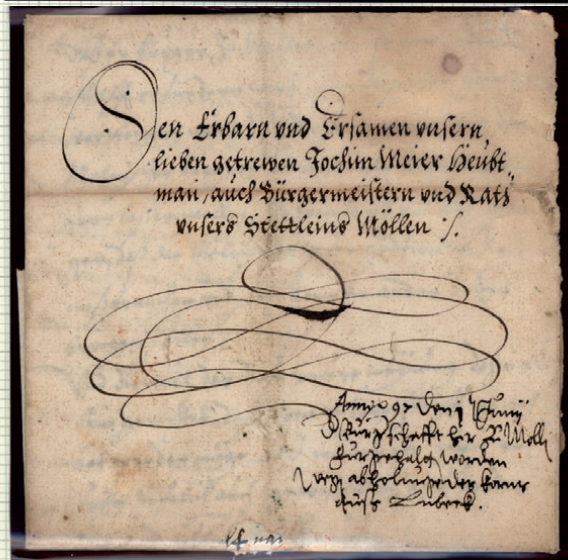 Den Erbarn vnd Ersamen vnsern
lieben getrewen Jochim Meier Heubt
man, auch Bürgermeistern vnd Rath
vnsers Stettleins Möllen ./.
Anno 97 den 1 Junij
Bürgschafft hir zu Molln
worden
abholung der korns
Lubeck.